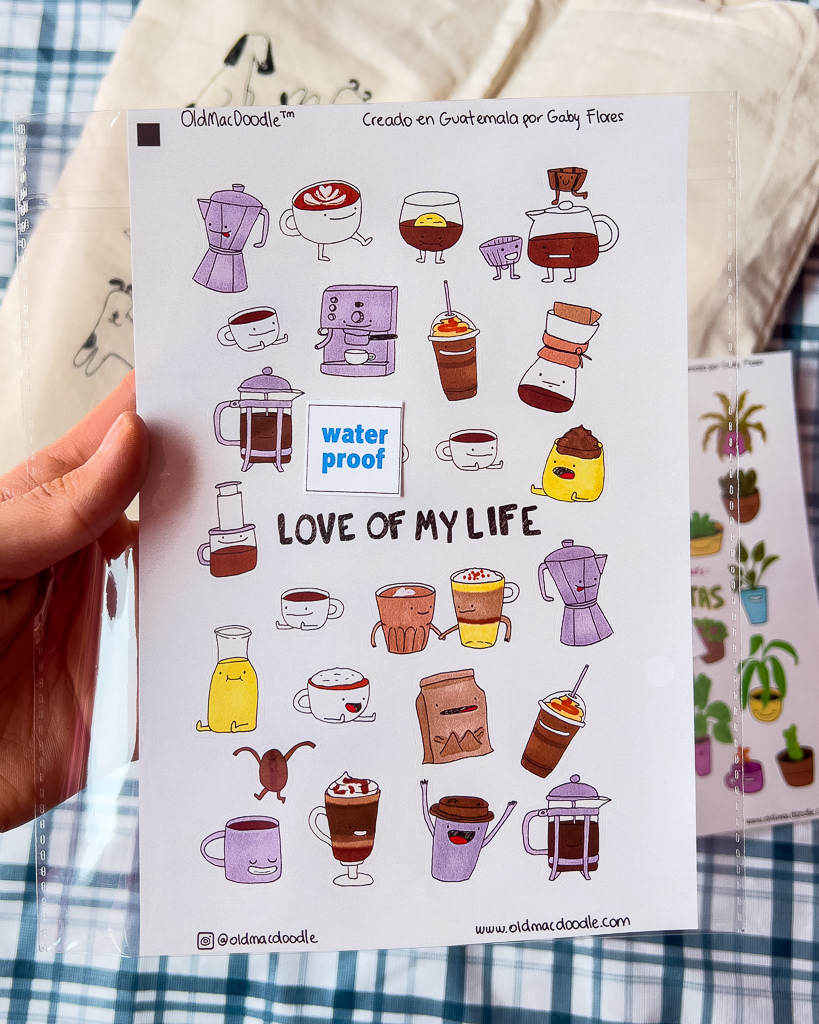 OldMacDoodle™
Creado en Guatemala por Gaby Flores
water
proof
LOVE OF MY LIFE
@oldmacdoodle
www.oldmacdoodle.com
por Gaby Flores